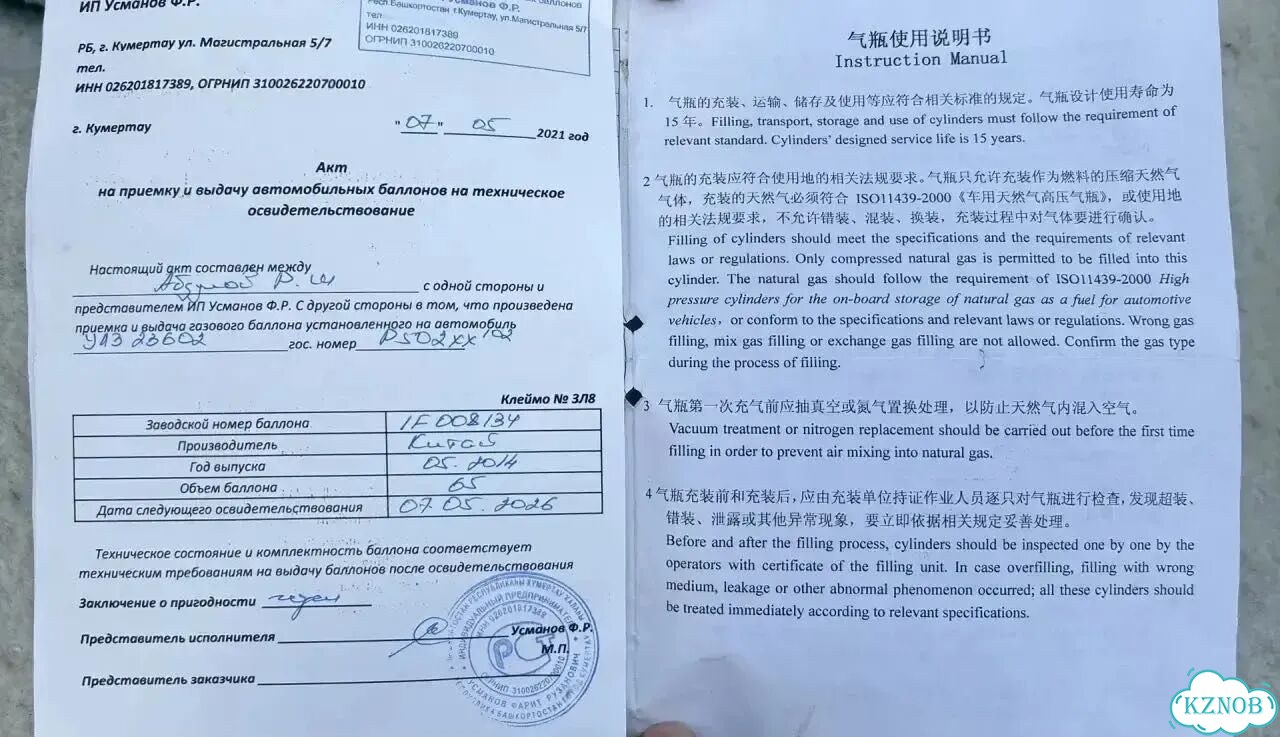 ИП Усманов Ф.Р.
баллонов
Усманов Ф.Р.
Респ.Башкортостан г.Кумертау, ул.Магистральная 5/7
тел
ИНН 026201817389
ОГРНИП 310026220700010
РБ, г. Кумертау ул. Магистральная 5/7
тел.
ИНН 026201817389, ОГРНИП 310026220700010
г. Кумертау
"07" 05 2021 год
Акт
на приемку и выдачу автомобильных баллонов на техническое
освидетельствование
Настоящий акт составлен между
Р. с одной стороны и
представителем ИП Усманов Ф.Р. С другой стороны в том, что произведена
приемка и выдача газового баллона установленного на автомобиль
УАЗ 23602 гос. номер Р502ХХ 102
Клеймо № 3Л8
Заводской номер баллона 1F008134
Производитель Китай
Год выпуска 05. 2014
Объем баллона 65
Дата следующего освидетельствования 07.05.2026
Техническое состояние и комплектность баллона соответствует
техническим требованиям на выдачу баллонов после освидетельствования
Заключение о пригодности годен
Представитель исполнителя Усманов Ф.Р.
М.П.
Представитель заказчика
ИНДИВИДУАЛЬНЫЙ ПРЕДПРИНИМАТЕЛЬ
ИНН 026201817389
РСТ
ОГРНИП 310026220700010
УСМАНОВ ФАРИТ РУЗАНОВИЧ
РЕСПУБЛИКА БАШКОРТОСТАН ГОРОД КУМЕРТАУ
气瓶使用说明书
Instruction Manual
1. 气瓶的充装、运输、储存及使用等应符合相关标准的规定。气瓶设计使用寿命为
15 年。Filling, transport, storage and use of cylinders must follow the requirement of
relevant standard. Cylinders' designed service life is 15 years.
2 气瓶的充装应符合使用地的相关法规要求。气瓶只允许充装作为燃料的压缩天然气
气体，充装的天然气必须符合 ISO11439-2000《车用天然气高压气瓶》，或使用地
的相关法规要求，不允许错装、混装、换装，充装过程中对气体要进行确认。
Filling of cylinders should meet the specifications and the requirements of relevant
laws or regulations. Only compressed natural gas is permitted to be filled into this
cylinder. The natural gas should follow the requirement of ISO11439-2000 High
pressure cylinders for the on-board storage of natural gas as a fuel for automotive
vehicles, or conform to the specifications and relevant laws or regulations. Wrong gas
filling, mix gas filling or exchange gas filling are not allowed. Confirm the gas type
during the process of filling.
3 气瓶第一次充气前应抽真空或氮气置换处理，以防止天然气内混入空气。
Vacuum treatment or nitrogen replacement should be carried out before the first time
filling in order to prevent air mixing into natural gas.
4 气瓶充装前和充装后，应由充装单位持证作业人员逐只对气瓶进行检查，发现超装、
错装、泄露或其他异常现象，要立即依据相关规定妥善处理。
Before and after the filling process, cylinders should be inspected one by one by the
operators with certificate of the filling unit. In case overfilling, filling with wrong
medium, leakage or other abnormal phenomenon occurred; all these cylinders should
be treated immediately according to relevant specifications.
KZNOB